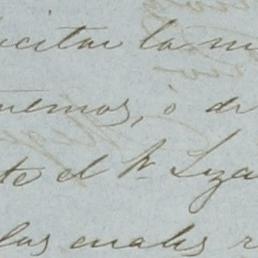 icitar la m
uemos, ó de
te el Sr Liza
las cuales r